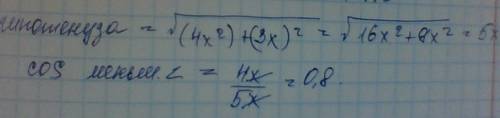 гипотенуза = √(4x²)+(3x)² = √16x²+9x² = 5x
cos меньш. ∠ = 4x/5x = 0,8.